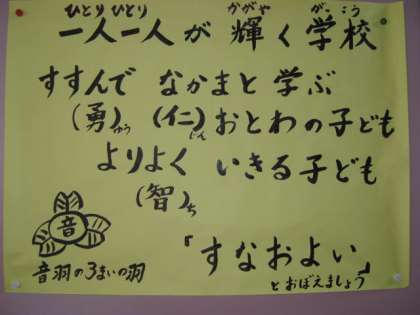 ひとりひとり かがや がっこう
一人一人が 輝く 学校
すすんで なかまと 学ぶ
(勇)ゆう (仁)じん おとわの子ども
よりよく いきる子ども
(智)ち
音
音羽の3まいの羽
「すなおよい」
とおぼえましょう